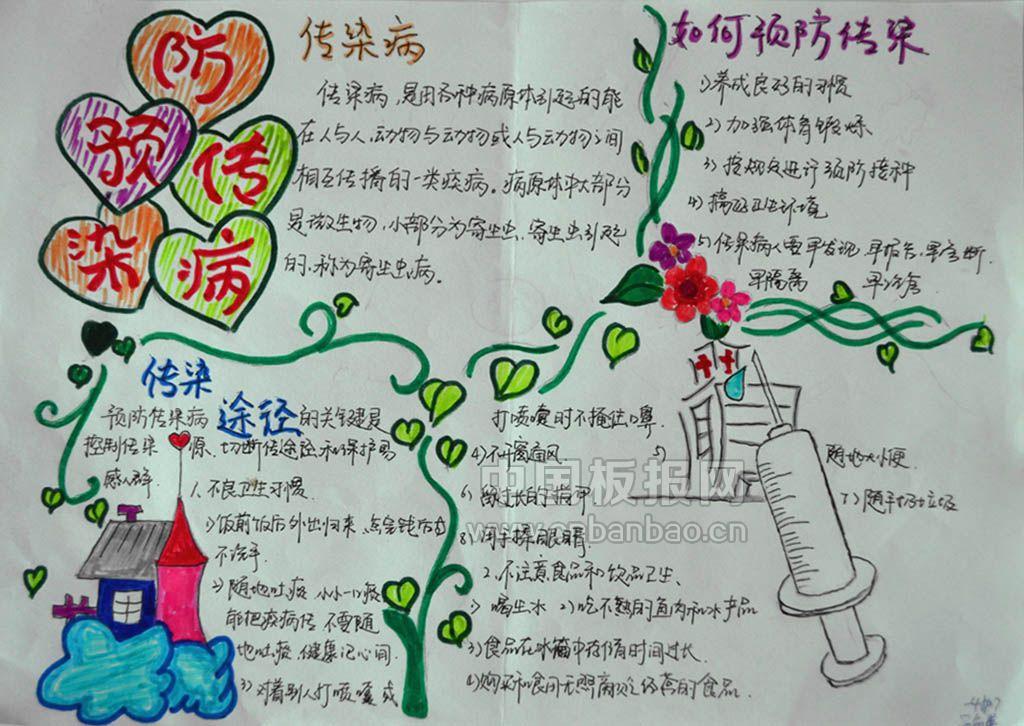 预防传染病
传染病
传染病,是由各种病原体引起的能
在人与人、动物与动物或人与动物之间
相互传播的一类疾病。病原体中大部分
是微生物,小部分为寄生虫,寄生虫引起
的,称为寄生虫病。
如何预防传染
1)养成良好的习惯
2)加强体育锻炼
3)按规定进行预防接种
4)搞好卫生环境
5)传染病人要早发现,早报告,早诊断,
早隔离 早治疗
传染
途径
预防传染病的关键是
控制传染源、切断传途径和保护易
感人群
1、不良卫生习惯、
1)饭前饭后外出归来
不洗手
2)随地吐痰 小小一口痰
能把疾病传 不要随
地吐痰 健康记心间、
3)对着别人打喷嚏或
打喷嚏时不掩住口鼻
4)不开窗通风
5)随地大小便
6)做过长的指甲
7)随手扔垃圾
8)用手揉眼睛
2、不注意食品和饮品卫生、
1)喝生水 2)吃不熟的鱼肉和水产品
3)食品在冰箱中存储时间过长
4)购买和食用无照商贩经营的食品
中国板报网
www.cnbanbao.cn